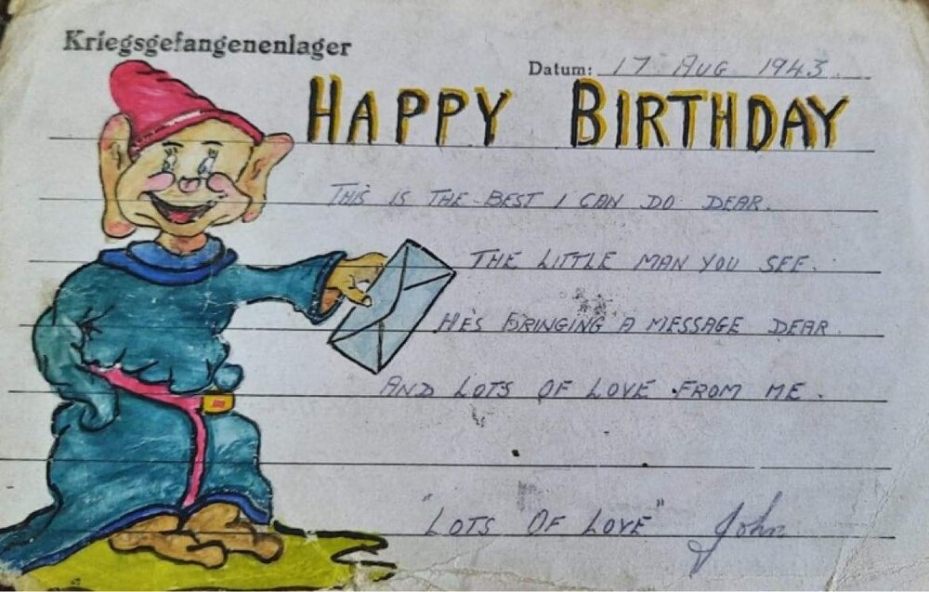 Kriegsgefangenenlager
Datum: 17 AUG 1943
HAPPY BIRTHDAY
THIS IS THE BEST I CAN DO DEAR.
THE LITTLE MAN YOU SEE.
HE'S BRINGING A MESSAGE DEAR
AND LOTS OF LOVE FROM ME.
"LOTS OF LOVE" John